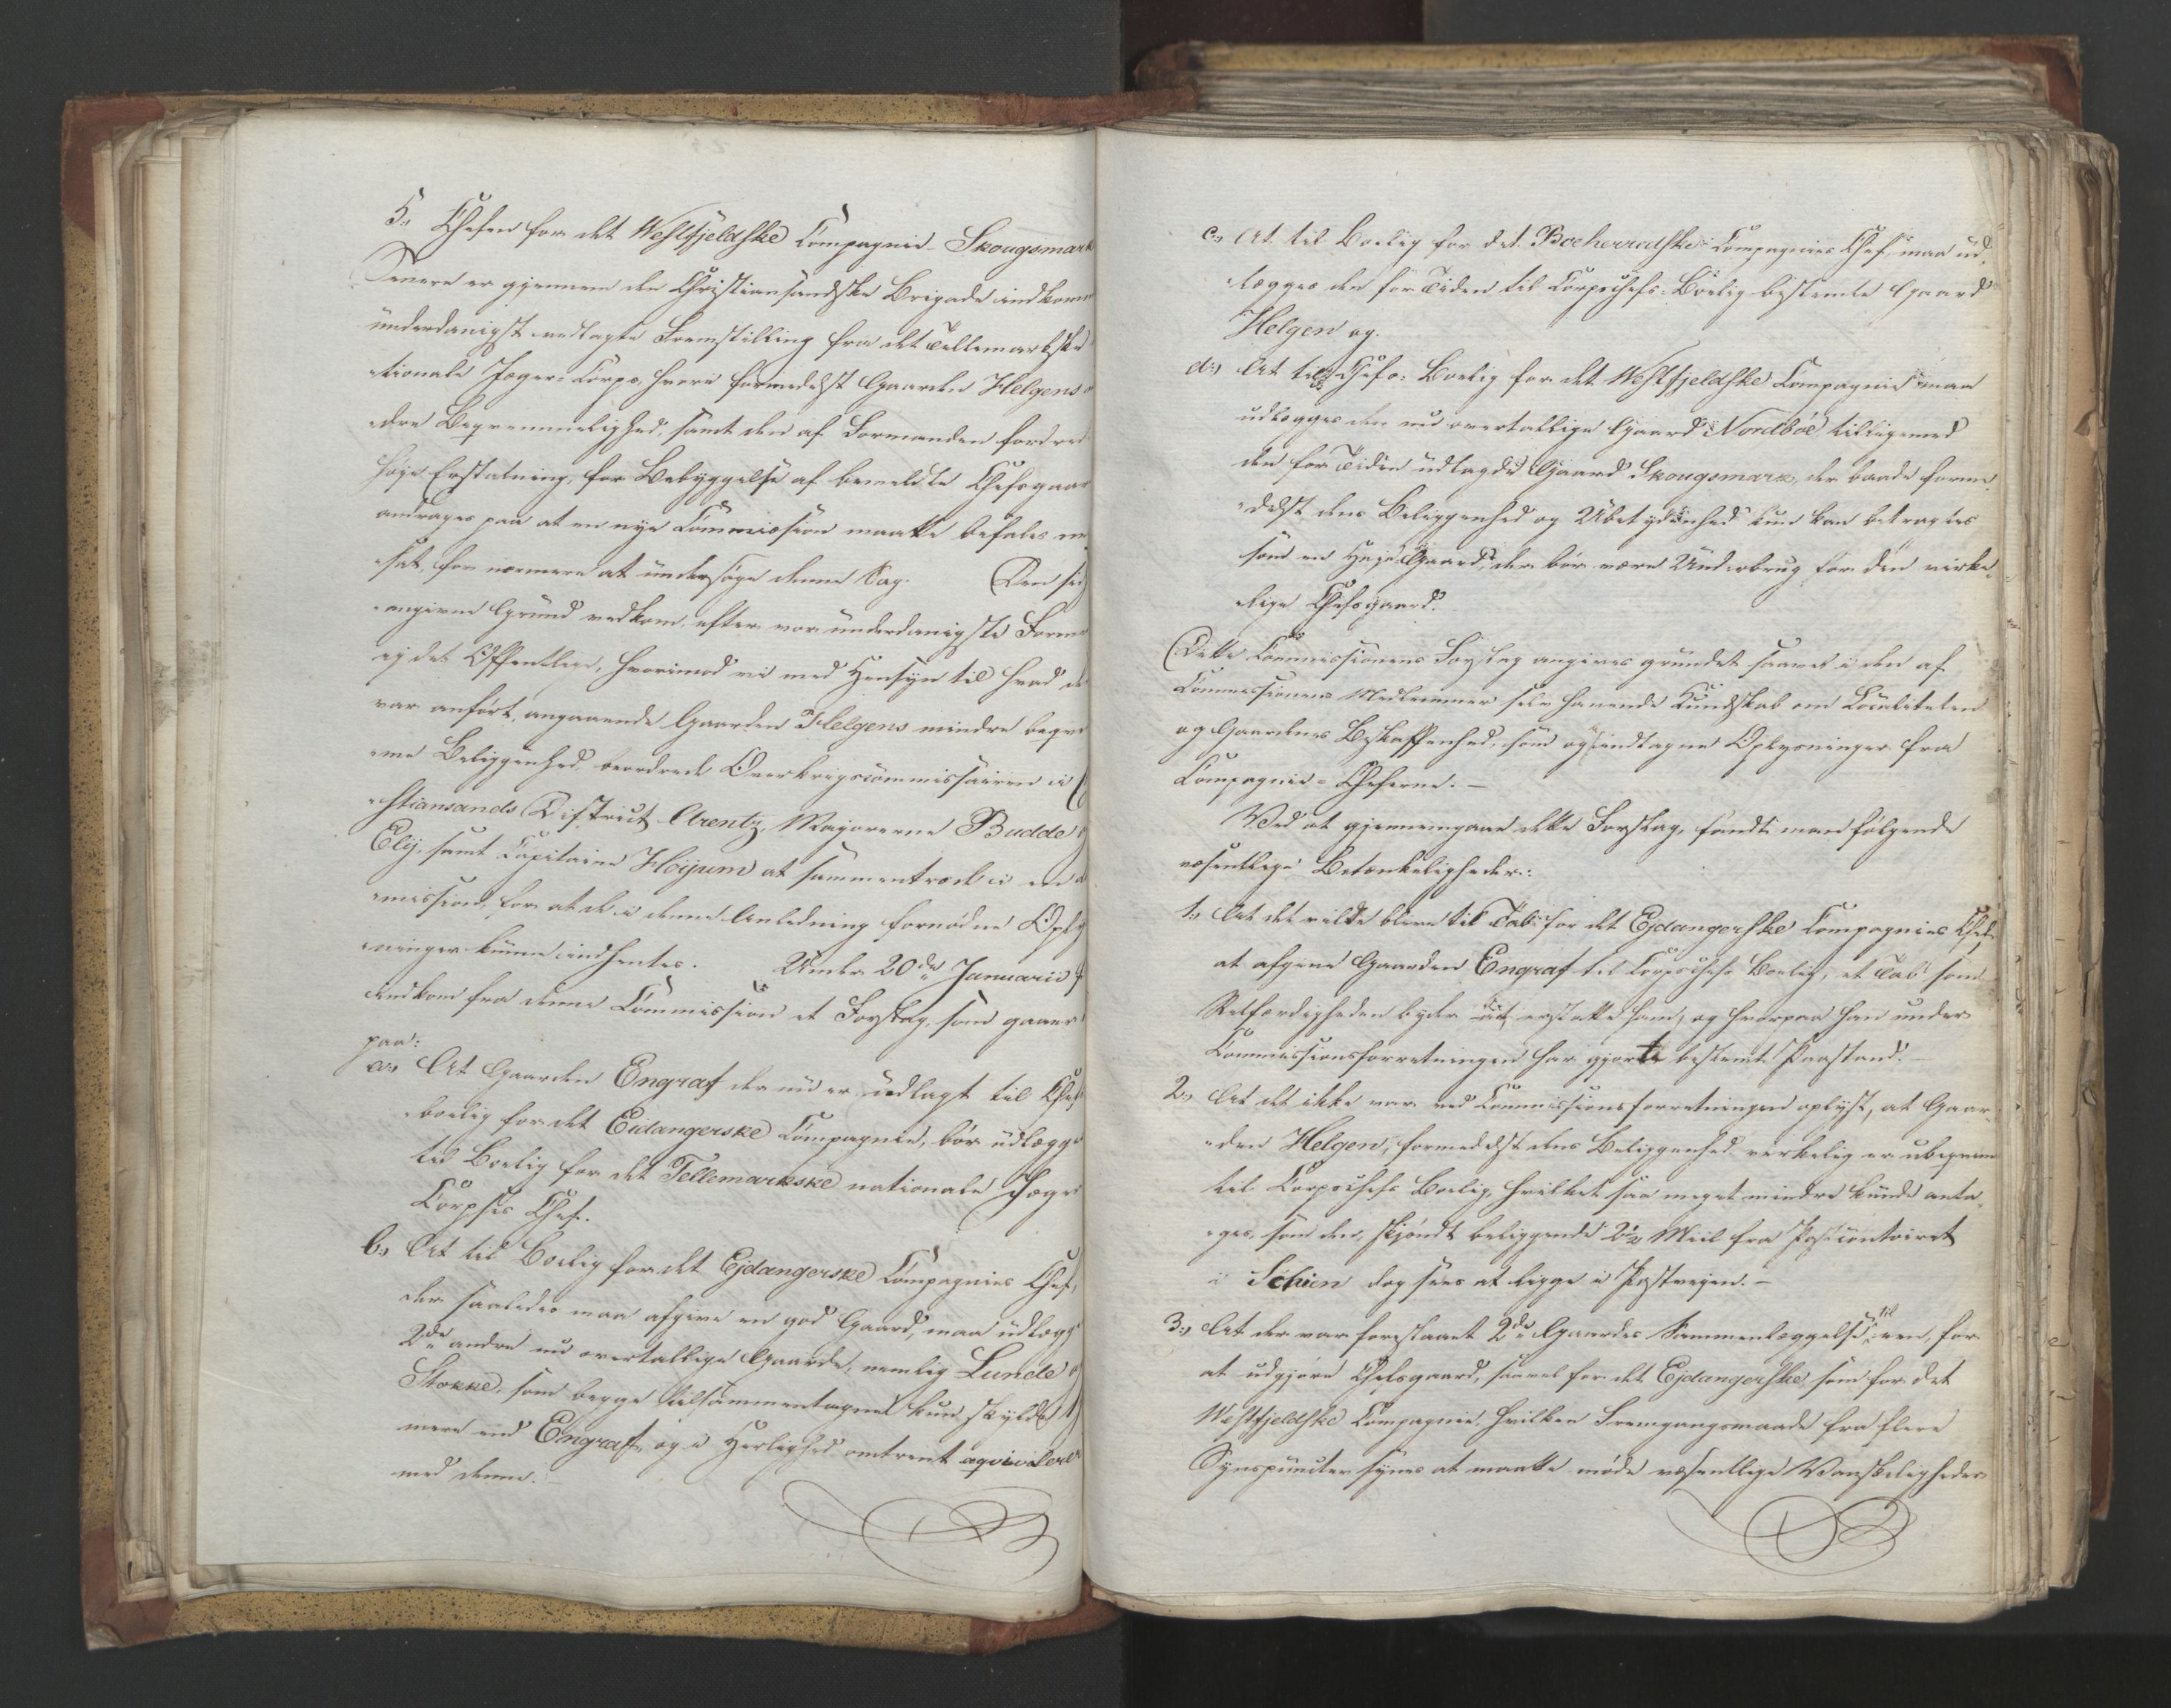 5., Chefen for det Westfjeldske Compagnie Skougsmark
Senere er gjennem den Christiansandske Brigade indkom
underdanigst vedlagte Fremstilling fra det Tellemarkske
tionale Jæger-Corps, hvori formedelst Gaarden Helgens
dre Beqvemmelighed, samt den af Formanden fordred
høje Erstatning, for Bebyggelse af bemeldte Chefsgaar
andrages paa at en nye Commission maatte befales ne
sat, for nærmere at undersøge denne Sag. Den sid
angivne Grund vedkom, efter vor underdanigste Forme
ej det Offentlige, hvorimod vi med Hensyn til hvad de
var anført, angaaende Gaarden Helgens mindre beqve
me Beliggenhed, beordrede Overkrigscommissairen i
stiansands District Arentz, Majorerne Budde
Ely, samt Capitaine Höyum at sammentræde i en
mission, for at de i denne Anledning fornødne Oply
ninger kunne indhentes. Under 20de Januarii
indkom fra denne Commission et Forslag, som gaaer
paa:
a., At Gaarden Engraf der nu er udlagt til Chef
boelig for det Eidangerske Compagnie, bør udlægge
til Boelig for det Tellemarkske nationale Jæger
Corpses Chef.
b., At til Boelig for det Ejdangerske Compagnies Chef,
der saaledes maa afgive en god Gaard, maa udlægge
2de andre nu overtallige Gaarde, nemlig Lunde
Stokke, som begge tilsammentagne kun skylde
mere end Engraf, og i Herlighed omtrent æqvivalere
med denne.
c., At til Boelig for det Boeherredske Compagnies Chef, maa ud
lægges den for Tiden til Corpschefs-Boelig bestemte Gaard
Helgen og.
d., At til Chefs-Boelig for det Westfjeldske Compagnie maa
udlægges den nu overtallige Gaard Nordböe tilligemed
den for Tiden udlagde Gaard Skougsmark, der baade forme
delst dens Beliggenhed og Ubetydenhed kun kan betragtes
som en Gaard, der bør være Underbrug for den virke
lige Chefsgaard.
Dette Commissionens Forslag angives grundet saavel i den af
Commissionens Medlemmer selv havende Kundskab om Localiteten
og Gaardenes Beskaffenhed, som og indtagne Oplysninger fra
Compagnie-Cheferne.
Ved at gjennemgaae dette Forslag, fandt man følgende
væsentlige Betænkeligheder:
1., At det vilde blive til Tab for det Ejdangerske Compagnies Chef
at afgive Gaarden Engraf til Corpschefs Boelig, et Tab som
Retfærdigheden byder at erstatte ham, og hvorpaa han under
Commissionsforretningen har gjort bestemt Paastand.
2., At det ikke var ved Commissionsforretningen oplyst, at Gaar
den Helgen, formedelst dens Beliggenhed virkelig er ubeqvem
til Corpschefs Boelig, hvilket saa meget mindre kunde anta
ges, som den, skjøndt beliggende 2½ Miil fra Postcontoiret
i Schien dog sees at ligge i Postveyen.
3., At der var foreslaaet 2de Gaardes Sammenlæggelse til een, for
at udgjøre Chefsgaard, saavel for det Ejdangerske, som for det
Westfjeldske Compagnie, hvilken Fremgangsmaade fra flere
Synspuncter synes at maatte møde væsentlige Vanskeligheder